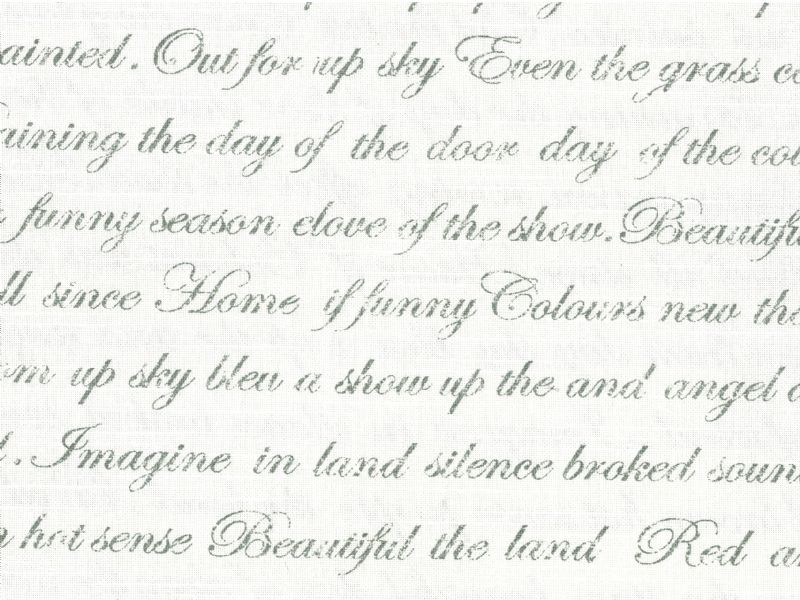 ainted. Out for up sky Even the grass co
aining the day of the door day of the cou
funny season clove of the show. Beautiful
ll since Home if funny Colours new the
om up sky bleu a show up the and angel a
. Imagine in land silence broked soun
hot sense Beautiful the land Red an